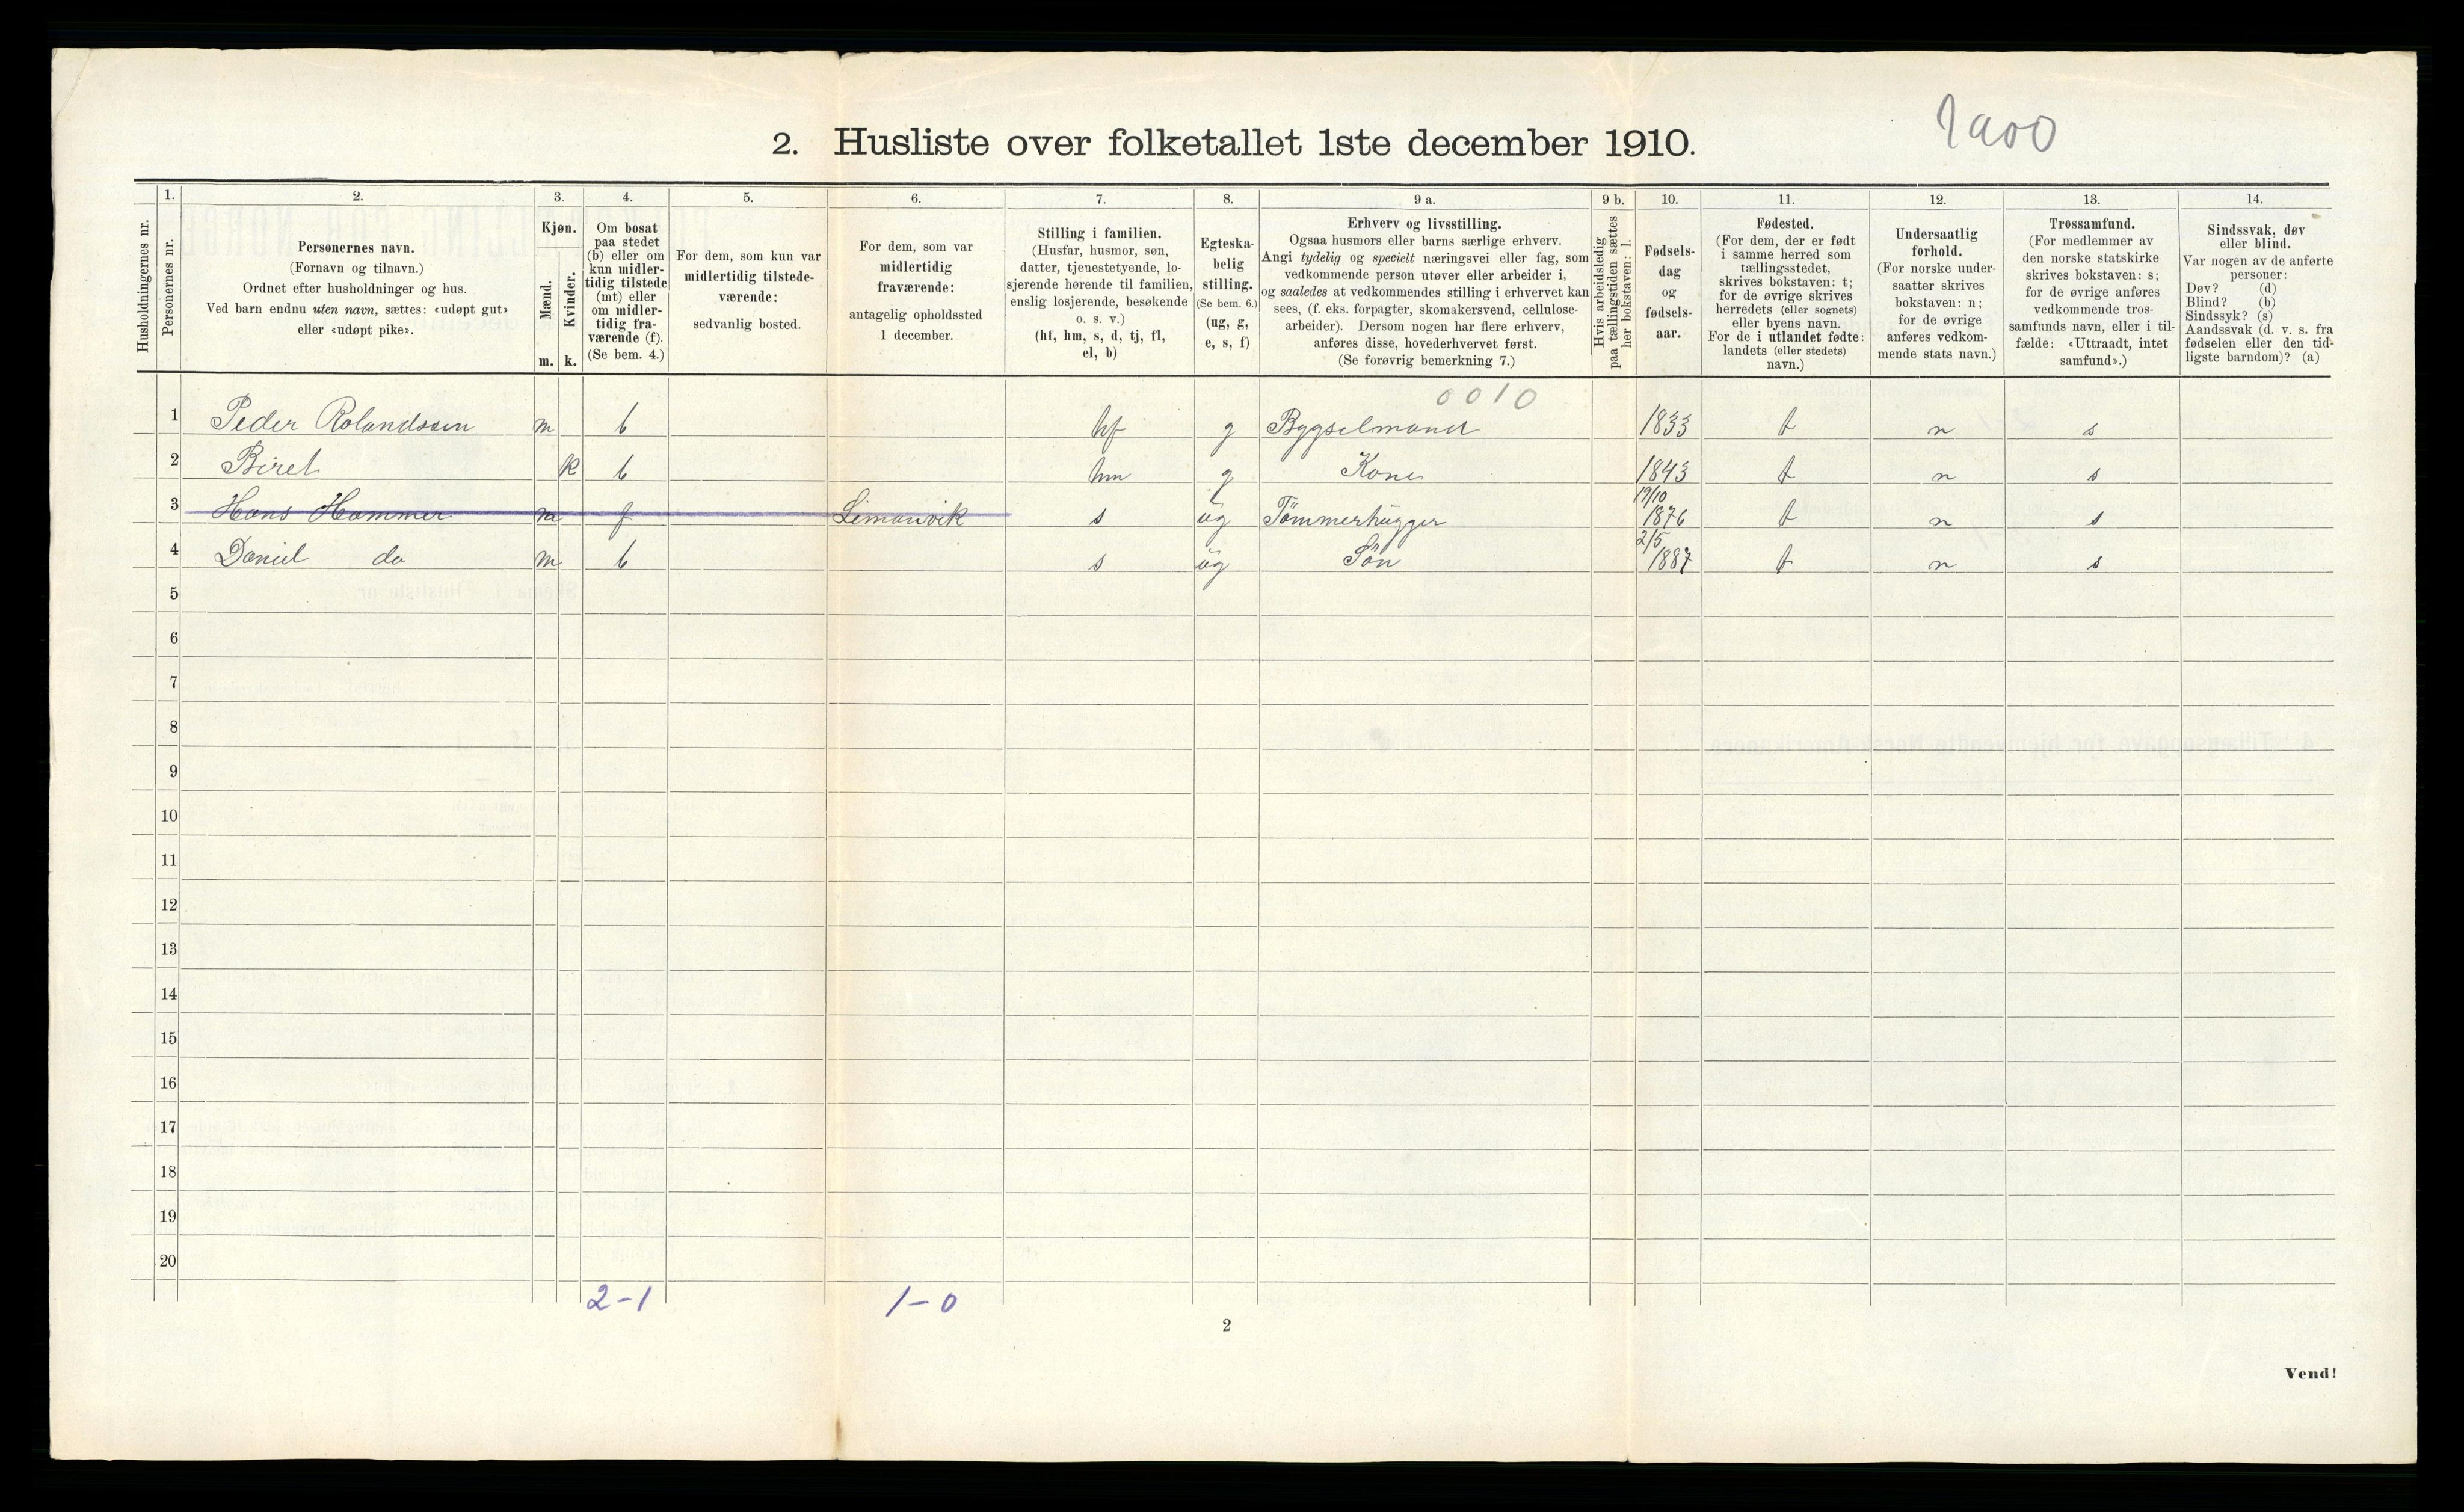 2. Husliste over folketallet 1ste december 1910.
Husholdningernes nr.
1.
Personernes nr.
2.
Personernes navn.
(Fornavn og tilnavn.)
Ordnet efter husholdninger og hus.
Ved barn endnu uten navn, sættes: «udøpt gut»
eller «udøpt pike».
3.
Kjøn.
Mænd.
Kvinder.
m. k.
4.
Om bosat
paa stedet
(b) eller om
kun midler-
tidig tilstede
(mt) eller
om midler-
tidig fra-
værende (f).
(Se bem. 4.)
5.
For dem, som kun var
midlertidig tilstede-
værende:
sedvanlig bosted.
6.
For dem, som var
midlertidig
fraværende:
antagelig opholdssted
1 december.
7.
Stilling i familien.
(Husfar, husmor, søn,
datter, tjenestetyende, lo-
sjerende hørende til familien,
enslig losjerende, besøkende
o. s. v.)
(hf, hm, s, d, tj, fl,
el, b)
8.
Egteska-
belig
stilling.
(Se bem. 6.)
(ug, g,
e, s, f)
9 a.
Erhverv og livsstilling.
Ogsaa husmors eller barns særlige erhverv.
Angi tydelig og specielt næringsvei eller fag, som
vedkommende person utøver eller arbeider i,
og saaledes at vedkommendes stilling i erhvervet kan
sees, (f. eks. forpagter, skomakersvend, cellulose-
arbeider). Dersom nogen har flere erhverv,
anføres disse, hovederhvervet først.
(Se forøvrig bemerkning 7.)
9 b.
Hvis arbeidsledig
paa tællingstiden sættes
her bokstaven: l.
10.
Fødsels-
dag
og
fødsels-
aar.
11.
Fødested.
(For dem, der er født
i samme herred som
tællingsstedet,
skrives bokstaven: t;
for de øvrige skrives
herredets (eller sognets)
eller byens navn.
For de i utlandet fødte:
landets (eller stedets)
navn.)
12.
Undersaatlig
forhold.
(For norske under-
saatter skrives
bokstaven: n;
for de øvrige
anføres vedkom-
mende stats navn.)
13.
Trossamfund.
(For medlemmer av
den norske statskirke
skrives bokstaven: s;
for de øvrige anføres
vedkommende tros-
samfunds navn, eller i til-
fælde: «Uttraadt, intet
samfund».)
14.
Sindssvak, døv
eller blind.
Var nogen av de anførte
personer:
Døv? (d)
Blind? (b)
Sindssyk? (s)
Aandssvak (d. v. s. fra
fødselen eller den tid-
ligste barndom)? (a)
0010
1 Peder Rolandssen m b hf g Bygselmand 1833 t n s
2 Beret k b hm g Kone 1843 t n s
3 Hans Hammer m f Limanvik s ug Tømmerhugger 19/10 1876 t n s
4 Daniel do m b s ug Søn 2/5 1887 t n s
5
6
7
8
9
10
11
12
13
14
15
16
17
18
19
20
2-1 1-0
2
Vend!